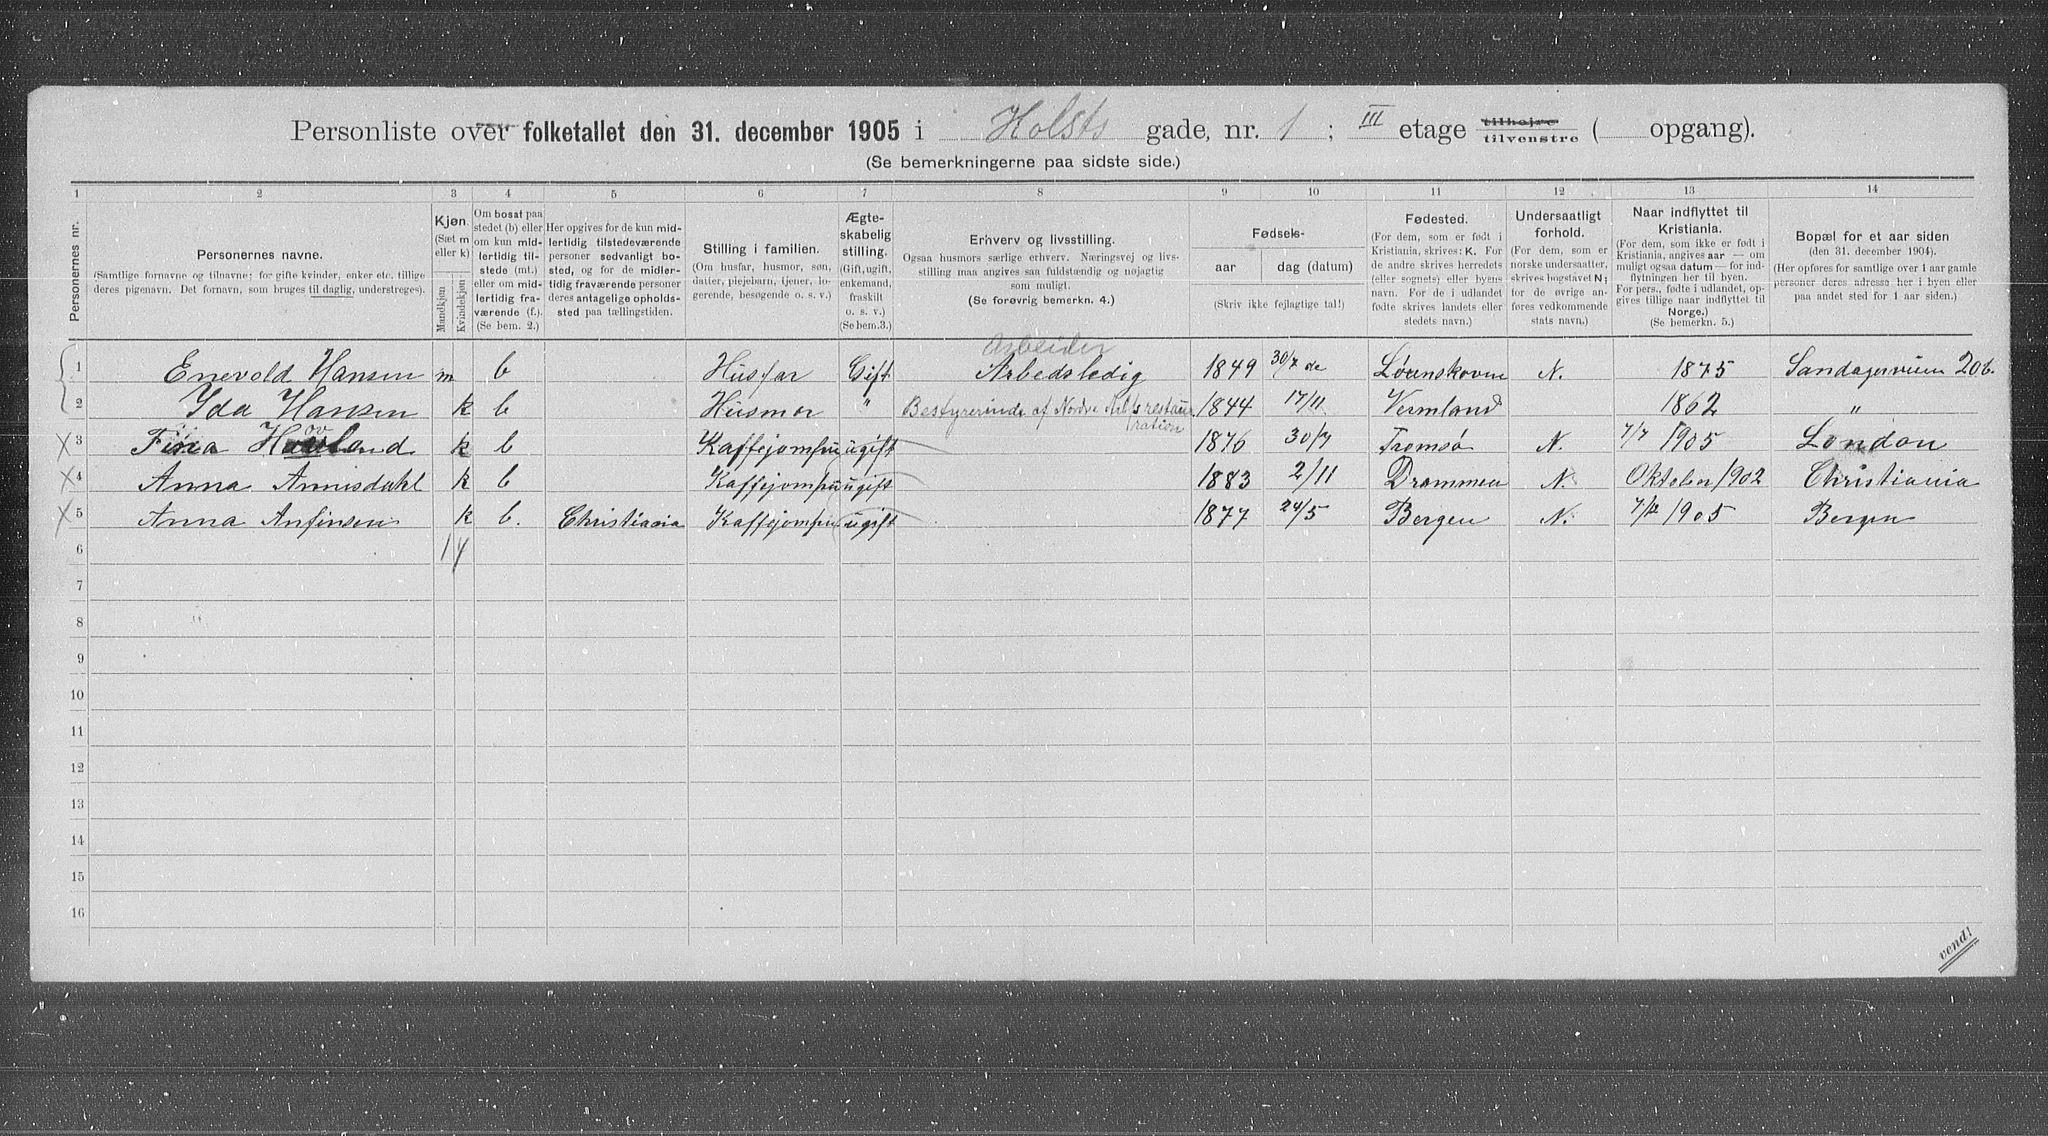 Personliste over folketallet den 31. december 1905 i Holsts gade, nr. 1 ; III etage tilhøjre tilvenstre ( opgang).
(Se bemerkningerne paa sidste side.)
1 2 3 4 5 6 7 8 9 10 11 12 13 14
Personernes nr.
Personernes navne.
(Samtlige fornavne og tilnavne; for gifte kvinder, enker etc. tillige deres pigenavn. Det fornavn, som bruges til daglig, understreges).
Kjøn.
(Sæt m eller k)
Mandkjøn Kvindekjøn
Om bosat paa stedet (b) eller om kun midlertidig tilstede (mt.) eller om midlertidig fraværende (f.). (Se bem. 2.)
Her opgives for de kun midlertidig tilstedeværende personer sedvanligt bosted, og for de midlertidig fraværende personer deres antagelige opholdssted paa tællingstiden.
Stilling i familien.
(Om husfar, husmor, søn, datter, plejebarn, tjener, logerende, besøgende o. s. v.)
Ægteskabelig stilling.
(Gift, ugift, enkemand, fraskilt o. s. v.) (Se bem.3.)
Erhverv og livsstilling.
Ogsaa husmors særlige erhverv. Næringsvej og livsstilling maa angives saa fuldstændig og nøjagtig som muligt.
(Se forøvrig bemerkn. 4.)
Fødsels-
aar dag (datum)
(Skriv ikke fejlagtige tal!)
Fødested.
(For dem, som er født i Kristiania, skrives: K. For de andre skrives herredets (eller sognets) eller byens navn. For de i udlandet fødte skrives landets eller stedets navn.)
Undersaatligt forhold.
(For dem, som er norske undersaatter, skrives bogstavet N; for de øvrige anføres vedkommende stats navn.)
Naar indflyttet til Kristiania.
(For dem, som ikke er født i Kristiania, angives aar — om muligt ogsaa datum — for indflytningen her til byen. For pers., fødte i udlandet, opgives tillige naar indflyttet til Norge.) (Se bemerkn. 5.)
Bopæl for et aar siden
(den 31. december 1904).
(Her opføres for samtlige over 1 aar gamle personer deres adresse her i byen eller paa andet sted for 1 aar siden.)
Arbeider
1 Enevold Hansen m b Husfar Gift Arbedsledig 1849 30/7 N. 1875 20b.
2 Ida Hansen k b Husmor " Bestyrerinde af Nordre 1844 17/11 Vermland 1862 "
3 k b ugift 1876 30/7 Tromsø N. 7/7 1905 London
4 Anna Annisdahl k b ugift 1883 2/11 Drammen N. Oktober 1902 Christiania
5 Anna Anfinsen k b. Christiania ugift 1877 24/5 Bergen N. 7/12 1905 Bergen
6 1 4
7
8
9
10
11
12
13
14
15
16
vend!